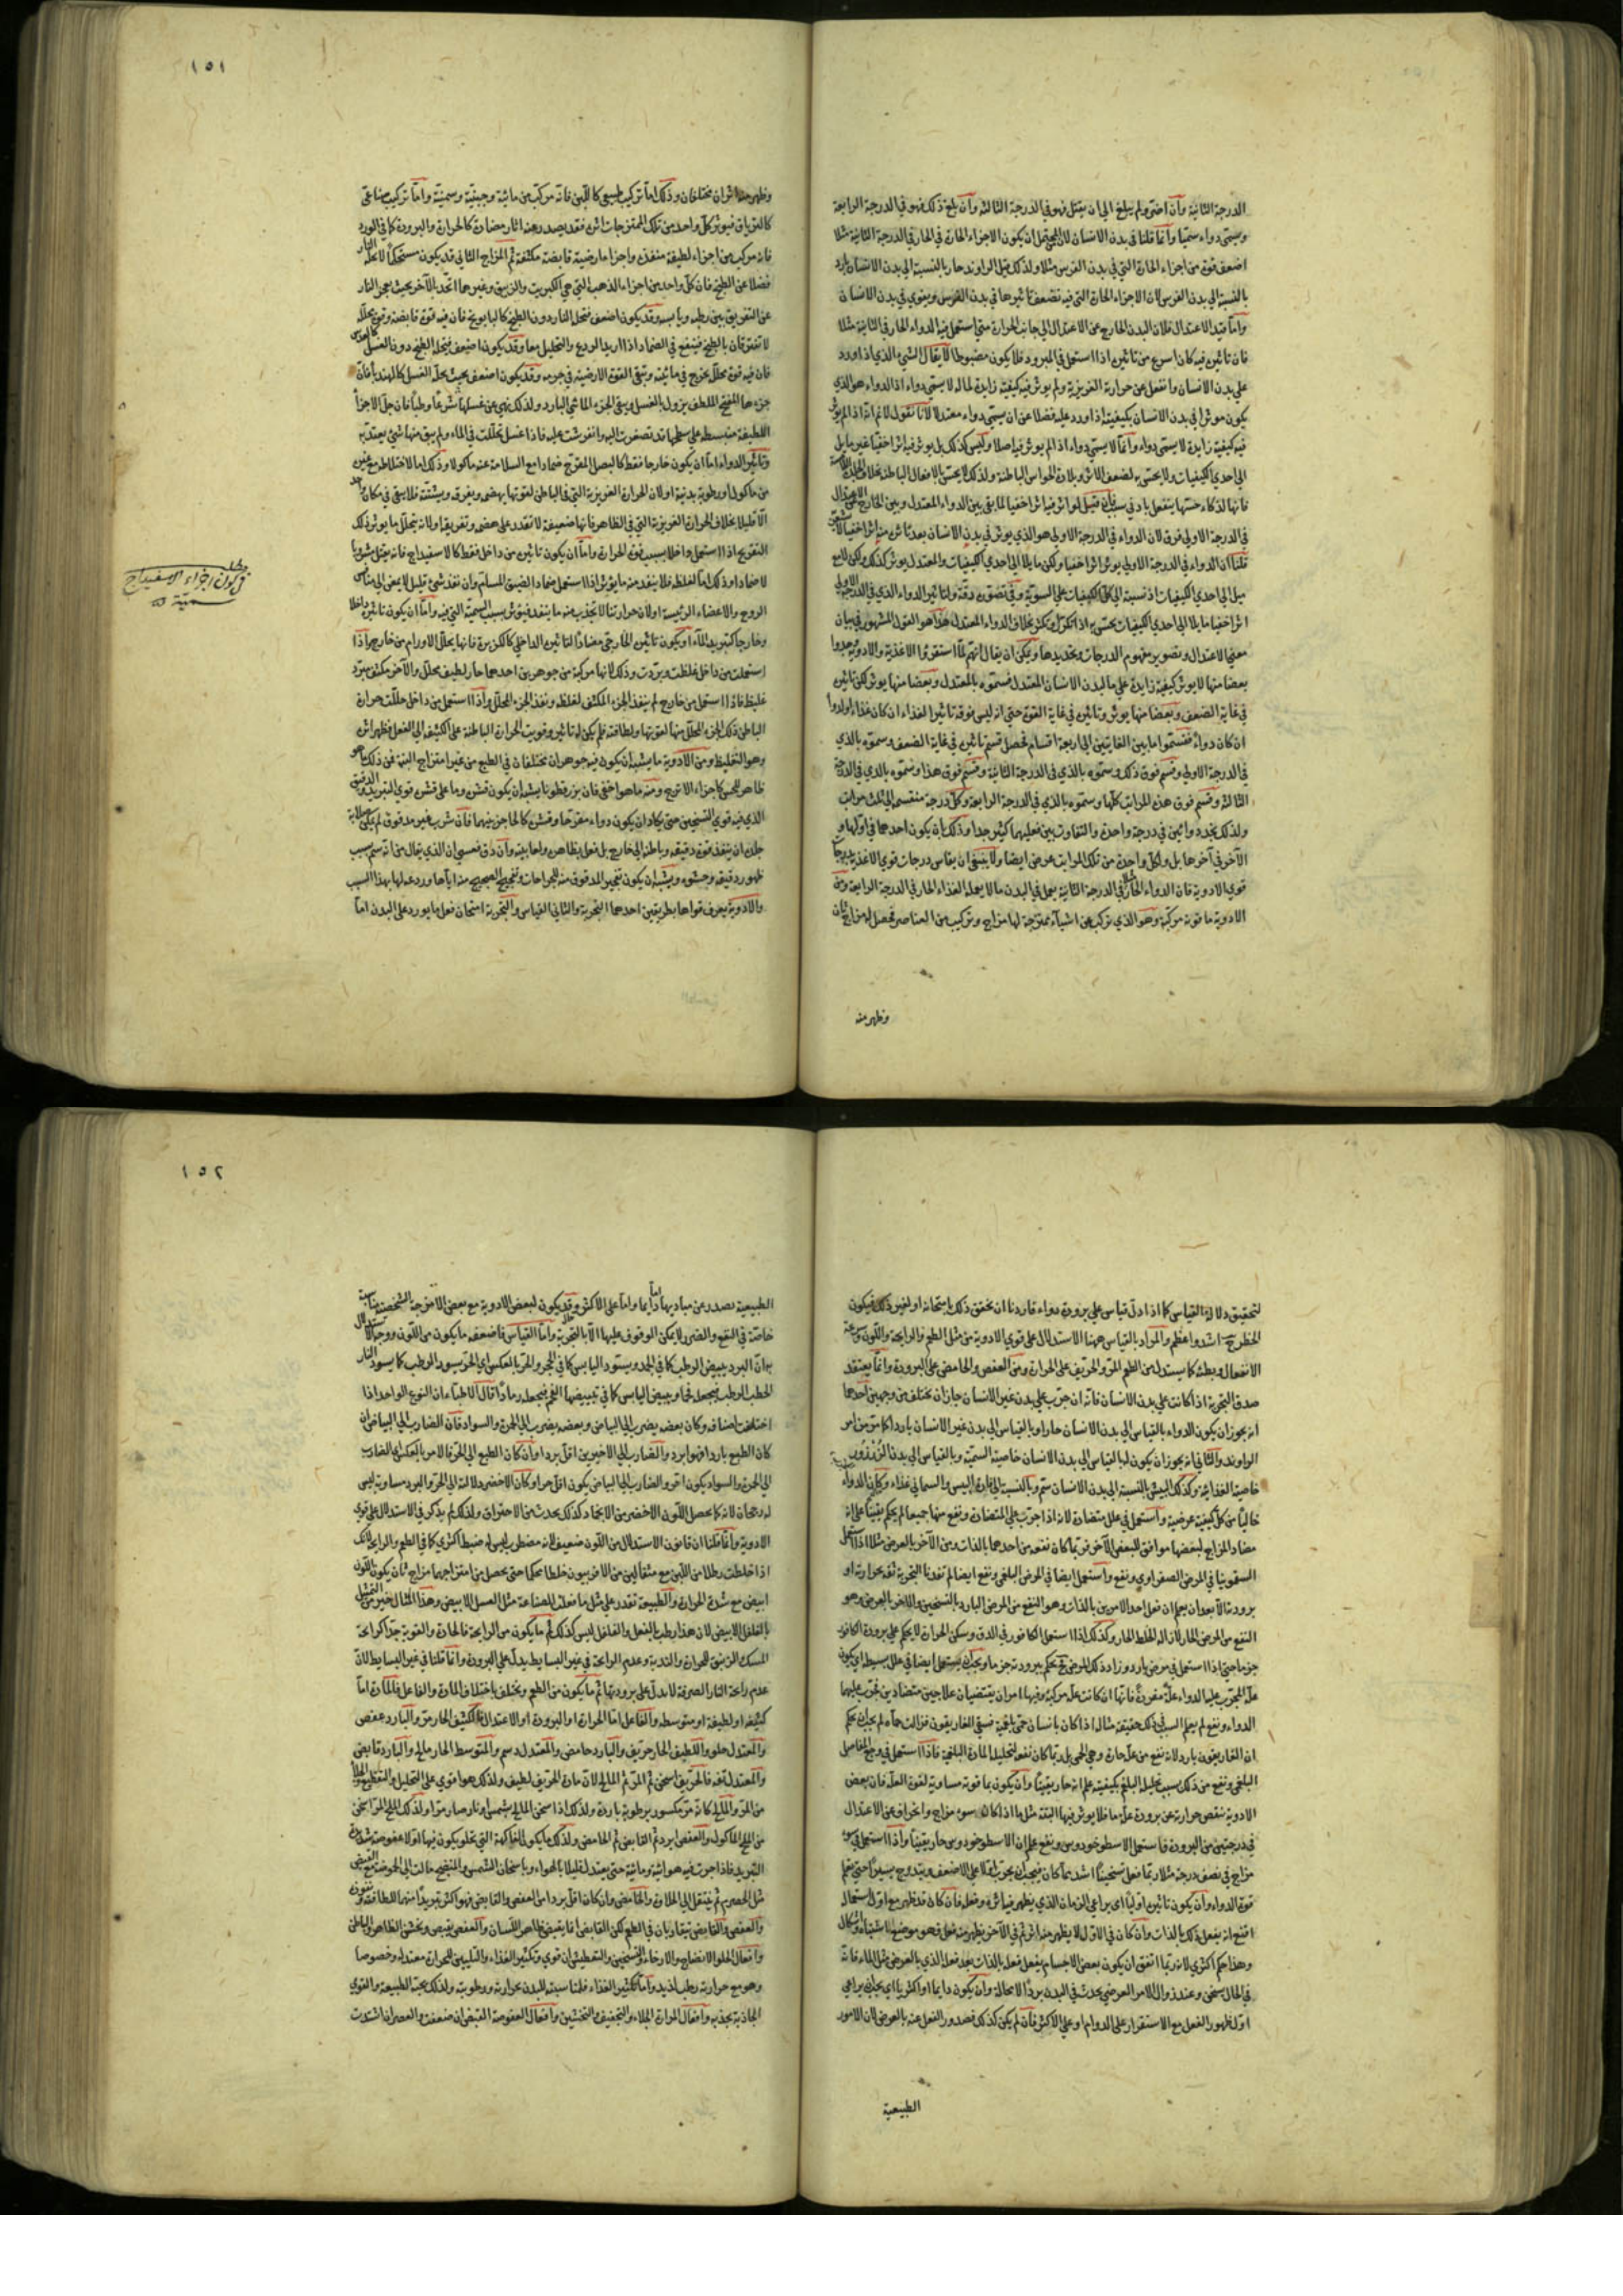 الدرجة الثانية وان اضرّ ولم يبلغ الى ان يقتل فهو في الدرجة الثالثة وان بلغ ذلك فهو في الدرجة الرابعة
ويسمى دواء سمّيا وانما قلنا في بدن الانسان لان يحتمل ان يكون الاجزاء الحارة في الحار في الدرجة الثانية مثلا
اضعف قوة من اجزاء الحارة التي في بدن الفرس مثلا ولذلك قيل الراوند حار بالنسبة الى بدن الانسان بارد
بالنسبة الى بدن الفرس لان الاجزاء الحارة التي فيه تضعف تاثيرها في بدن الفرس ويقوي في بدن الانسان
واما قيد الاعتدال فلان البدن الخارج عن الاعتدال الى جانب الحرارة متى استعمل فيه الدواء الحار في الثانية مثلا
فان تاثيره فيه كان اسرع من تاثيره اذا استعمل في المبرود فلا يكون مضبوطا لا يقال الشيء الذي اذا ورد
على بدن الانسان وانفعل عن حرارته الغريزية ولم يوثر فيه كيفية زايدة لما له لا يسمى دواء اذ الدواء هو الذي
يكون موثرا في بدن الانسان بكيفيته اذا ورد عليه فضلا عن ان يسمى دواء معتدلا لانا نقول لا نم انه اذا لم يوثر
فيه كيفية زايدة لا يسمى دواء وانما لا يسمى دواء اذا لم يوثر فيه اصلا وليس كذلك بل يوثر فيه اثرا خفيا غير مايل
الى احدي الكيفيات ولا يحس به لضعف الاثر وبلادة الحواس الباطنة ولذلك لا يحس بالافعال الباطنة بخلاف
فانها لذكاء حسّها ينفعل بادنى سبب فان قيل لو اثر فيه اثرا خفيا لما بقي بين الدواء المعتدل وبين الخارج عن الاعتدال
في الدرجة الاولى فرق لان الدواء في الدرجة الاولى هو الذي يوثر في بدن الانسان بعد تاثره منه اثرا خفيا
قلنا ان الدواء في الدرجة الاولى يوثر اثرا خفيا ولكن مايلا الى احدي الكيفيات والمعتدل يوثر كذلك ولكن لا مع
ميل الى احدي الكيفيات اذ نسبته الى كل الكيفيات على السويّة وفي تصوره دقة ولتاثير الدواء الذي في الدرجة الاولى
اثرا خفيا مايلا الى احدي الكيفيات يحس به اذا تكرر وتكثر بخلاف الدواء المعتدل هذا هو القول المشهور في بيان
معنى الاعتدال وتصوير مفهوم الدرجات وتحديدها ويمكن ان يقال انهم لما استقروا الاغذية والادوية وجدوا
بعضا منها لا يوثر كيفية زايدة على ما لبدن الانسان المعتدل فسموه بالمعتدل وبعضا منها يوثر لكن تاثيره
في غاية الضعف وبعضا منها يوثر وتاثيره في غاية القوة حتى انه ليس فوقه تاثيرا لغذاء ان كان غذاء او لدواء
ان كان دواء فقسّموا ما بين الغايتين الى اربعة اقسام فحصل قسم تاثيره في غاية الضعف وسموه بالذي
في الدرجة الاولى وقسم فوق ذلك وسموه بالذي في الدرجة الثانية وقسم فوق هذا وسموه بالذي في الدرجة
الثالثة وقسم فوق هذه المراتب كلّها وسموه بالذي في الدرجة الرابعة وكل درجة منقسمة الى ثلث مراتب
ولذلك نجد دوائين في درجة واحدة والتفاوت بين فعليهما كثير جدا وذلك بان يكون احدهما في اولها و
الآخر في آخرها بل ولكل واحدة من تلك المراتب عرض ايضا ولا ينبغي ان يقاس درجات قوي الاغذية بدرجات
قوي الادوية فان الدواء الحار مثلا في الدرجة الثانية يعمل في البدن ما لا يعمله الغذاء الحار في الدرجة الرابعة ومن
الادوية ما قوته مركبة وهو الذي تركب عن اشياء ممتزجة لها مزاج وتركيب من العناصر فحصل له مزاج ثان
وظهر منه
١٥١
وظهر منه اثران مختلفان وذلك اما تركيب طبيعي كاللبن فانه مركب من مائية وجبنية وسمنية واما تركيب صناعي
كالترياق فيوثر كل واحد من تلك الممتزجات اثره فقد يصدر عنه اثار متضادة كالحرارة والبرودة كما في الورد
فانه مركب من اجزاء لطيفة منفذة واجزاء ارضية قابضة مكثفة ثم المزاج الثاني قد يكون مستحكما لا تحلّه النار
فضلا عن الطبخ فان كل واحد من اجزاء الذهب التي هي الكبريت والزيبق وغيرها اتحد بالآخر بحيث يعجز النار
عن التفريق بين رطبه ويابسه وقد يكون اضعف فتحلّه النار دون الطبخ كالبابونج فان فيه قوة قابضة وقوة محللة
لا تفترقان بالطبخ فينفع في الضماد اذا اريد الردع والتحليل معا وقد يكون اضعف فيحله الطبخ دون الغسل كالعدس
فان فيه قوة محللة تخرج في مائيته وتبقى القوة الارضية في جرمه وقد يكون اضعف بحيث يحله الغسل كالهندباء فان
جزءها المفتح الملطف يزول بالغسل ويبقى الجزء المائي البارد ولذلك نهي عن غسلها شرعا وطبا فان جل الاجزاء
اللطيفة منبسطة على سطحها قد تصعدت اليه وانفرشت عليه فاذا غسل تحللت في الماء ولم يبق منها شيء يعتد به
وتاثير الدواء اما ان يكون خارجا فقط كالبصل المقرح ضمادا مع السلامة عنه ماكولا وذلك اما لاختلاطه مع غيره
من ماكول او رطوبة بدنية او لان الحرارة الغريزية التي في الباطن لقوتها يهضمه ويفرقه ويشتته فلا يبقى في مكان واحد
الا قليلا بخلاف الحرارة الغريزية التي في الظاهر فانها ضعيفة لا تقدر على هضمه وتفريقه ولانه يتحلل ما يوثر ذلك
التقريح اذا استعمل داخلا بسبب قوة الحرارة واما ان يكون تاثيره من داخل فقط كالاسفيداج فانه يقتل شربا
لا ضمادا وذلك اما لغلظه فلا ينفذ منه ما يوثر اذا استعمل ضمادا لضيق المسام وان نفذ شيء قليل لا يمضي الى منافس
الروح والاعضاء الرئيسة او لان حرارتنا لا تجذب منه ما ينفذ فيوثر بسبب السمية التي فيه واما ان يكون تاثيره داخلا
وخارجا كتبريد الماء او يكون تاثيره الخارجي مضادا لتاثيره الداخلي كالكزبرة فانها يحلل الاورام من خارج واذا
استعملت من داخل غلظت وبرّدت وذلك لانها مركبة من جوهرين احدهما حار لطيف محلل والآخر مكثف مبرّد
غليظ فاذا استعمل من خارج لم ينفذ الجزء المكثف لغلظه ونفذ الجزء المحلل واذا استعمل من داخل حللت حرارة
الباطن ذلك الجزء المحلل منها لقوتها ولطافته فلم يكن له تاثير وقويت الحرارة الباطنة على الكثيف الى الفعل فظهر اثره
وهو التغليظ ومن الادوية ما يشبه ان يكون فيه جوهران مختلفان في الطبع من غير امتزاج البتة فمن ذلك ما هو
ظاهر للحس كاجزاء الاترج ومنه ما هو اخفى فان بزرقطونا يشبه ان يكون قشره وما على قشره قوي التبريد والدقيق
الذي فيه قوي التسخين حتى يكاد ان يكون دواء مقرحا وقشره كالحاجز بينهما فان شرب غير مدقوق لم يمكن صلابة
جلده ان ينفذ قوة دقيقه وباطنه الى خارج بل فعل بظاهره ولعابيته وان دق فعسى ان الذي يقال من انه سم بسبب
ظهور دقيقه وحشوه ويشبه ان يكون تفجير المدقوق منه للجراحات وتفجيج الصحيح منه اياها وردعه لها بهذا السبب
والادوية يعرف قواها بطريقين احدهما التجربة والثاني القياس والتجربة امتحان فعل ما يورد على البدن اما
مطلب
في كون اجزاء الاسفيداج
سميّة
لتحقيق دلالة القياس كما اذا دلّ قياس على برودة دواء فاردنا ان نحقق ذلك بامتحانه او لغير ذلك فيكون
الخطر ح اشد واعظم والمراد بالقياس ههنا الاستدلال على قوي الادوية من مثل الطعم والرائحة واللون وسرعة
الانفعال وبطئه كما يستدل من الطعم المرّ والحريف على الحرارة ومن العفص والحامض على البرودة وانما يعتقد
صدق التجربة اذا كانت على بدن الانسان فانه ان جرّب على بدن غير الانسان جاز ان تختلف من وجهين احدهما
انه يجوز ان يكون الدواء بالقياس الى بدن الانسان حارا وبالقياس الى بدن غير الانسان باردا كما مرّ من امر
الراوند والثاني انه يجوز ان يكون له بالقياس الى بدن الانسان خاصية السميّة وبالقياس الى بدن الزرزور
خاصية الغذائية وكذلك البيش بالنسبة الى بدن الانسان سم وبالنسبة الى فارة البيش والسماني غذاء وكان الدواء
خاليا من كل كيفية عرضية واستعمل في علل متضادة لانه اذا جرّب على المتضادة ونفع منها جميعا لم يحكم يقينا على انه
مضاد المزاج لبعضها موافق للبعض الآخر فربما كان نفعه من احدهما بالذات ومن الآخر بالعرض مثلا اذا استعمل
السقمونيا في المرض الصفراوي ونفع واستعمل ايضا في المرض البلغمي ونفع ايضا لم تفدنا التجربة ثقة بحرارته او
برودته الا بعد ان يعلم ان فعل احد الامرين بالذات وهو النفع من المرض البارد بالتسخين والآخر بالعرض وهو
النفع من المرض الحار لازالة الخلط الحار وكذلك اذا استعمل الكافور في الدق وسكن الحرارة لا يحكم على برودة الكافور
جزما حتى اذا استعمل في مرض بارد وزاد ذلك المرض ح يحكم ببرودته جزما ويجب ان يستعمل ايضا في علل بسيطة اي يكون
علة المجرّب عليها الدواء علة مفردة فانها ان كانت علة مركبة وفيها امران يقتضيان علاجين متضادين فجرّب عليهما
الدواء ونفع لم يعلم السبب في ذلك حقيقة مثاله اذا كان بانسان حمّى بلغمية فسقي الغاريقون فزالت حماه لم يجب ان يحكم
ان الغاريقون بارد لانه نفع من علة حارة وهي الحمى بل ربما كان نفعه لتحليله المادة البلغمية فاذا استعمل في وجع المفاصل
البلغمي ونفع من ذلك بسبب تحليله البلغم بكيفيته علم انه حار يقينا وان يكون ما قوته مساوية لقوة العلة فان بعض
الادوية تنقص حرارته عن برودة علة ما فلا يوثر فيها البتة مثل ما اذا كان سوء مزاج وانحرافه عن الاعتدال
في درجتين من البرودة فاستعمل الاسطوخودوس ونفع علم ان الاسطوخودوس حار يقينا واذا استعمل في سوء
مزاج في نصف درجة مثلا ربما فعل تسخينا اشد مما كان فيجب ان يجرب اولا على الاضعف ويتدرج يسيرا حتى يعلم
قوة الدواء وان يكون تاثيره اوليا اي يراعي الزمان الذي يظهر فيه اثره وفعله فان كان قد ظهر مع اول استعماله
اقنع انه يفعل ذلك بالذات وان كان في الاول لا يظهر منه اثر ثم في الآخر يظهر منه فعل فهو موضع اشتباه واشكال
وهذا حكم اكثري لانه ربما اتفق ان يكون بعض الاجسام يفعل فعله بالذات بعد فعله الذي بالعرض مثل الماء فانه
في الحال يسخن وعند زوال الامر العرضي يحدث في البدن بردا لا محالة وان يكون دايما او اكثريا اي يجب ان يراعي
اول ظهور الفعل مع الاستقرار على الدوام او على الاكثر فان لم يكن كذلك فصدور الفعل عنه بالعرض لان الامور
الطبيعية
١٥٢
الطبيعية تصدر عن مباديها اما دايما واما على الاكثر وقد يكون لبعض الادوية مع بعض الامزجة الشخصية مناسبة
خاصة في النفع والضرر لا يمكن الوقوف عليها الا بالتجربة واما القياس فاضعفه ما يكون من اللون ووجه الاستدلال
به ان البرد يبيض الرطب كما في الجمد ويسود اليابس كما في الفحم والحر بالعكس اي الحر يسود الرطب كما يسود النار
الحطب الرطب فيجعله فحما ويبيض اليابس كما في تبييضها الفحم فيجعله رمادا قال الاطباء ان النوع الواحد اذا
اختلفت اصنافه وكان بعضه يضرب الى البياض وبعضه يضرب الى الحمرة والسواد فان الضارب الى البياض ان
كان الطبع باردا فهو ابرد والضارب الى الاخيرين اقل بردا وان كان الطبع الى الحر فالامر بالعكس اي الضارب
الى الحمرة والسواد يكون احر والضارب الى البياض يكون اقل حرا وكان الاخضر دلالته الى الحر والبرد مساوية ليس
له رجحان لانه كما يحصل اللون الاخضر من الانجماد كذلك يحدث من الاحتراق ولذلك لم يذكر في الاستدلال على قوي
الادوية وانما قلنا ان قانون الاستدلال من اللون ضعيف لانه مضطرب ليس له ضبط اكثري كما في الطعم والرائحة لانك
اذا خلطت رطلا من اللبن مع مثقالين من الافربيون خلطا محكما حتى يحصل من امتزاجهما مزاج ثان يكون اللون
ابيض مع شدة الحرارة والطبيعة تقدر على مثل ما فعلته الصناعة مثل العسل الابيض وهذا المثال خير من التمثيل
بالفلفل الابيض لان هذا رطب بالفعل والفلفل ليس كذلك ثم ما يكون من الرائحة فالحادة والقوية جدا كرائحة
المسك الزنبق للحرارة والندية وعدم الرائحة في غير البسايط يدل على البرودة وانما قلنا في غير البسايط لان
عدم رائحة النار الصرفة لا يدل على برودتها ثم ما يكون من الطعم ويختلف باختلاف المادة والفاعل فالمادة اما
كثيفة او لطيفة او متوسطة والفاعل اما الحرارة او البرودة او الاعتدال فالكثيف الحار مرّ والبارد عفص
والمعتدل حلو واللطيف الحار حريف والبارد حامض والمعتدل دسم والمتوسط الحار مالح والبارد قابض
والمعتدل تفه فالحريف اسخن ثم المرّ ثم المالح لان مادة الحريف لطيف ولذلك هو اقوى على التحليل والتقطيع والجلاء
من المرّ والمالح كانه مرّ مكسور برطوبة باردة ولذلك اذا سخن المالح بشمس او نار صار مرا ولذلك الملح المرّ اسخن
من الملح الماكول والعفص ابرد ثم القابض ثم الحامض ولذلك ما يكون الفاكهة التي تحلو يكون فيها اولا عفوصة شديدة
التبريد فاذا جرت فيه هوائية ومائية حتى يعتدل قليلا بالهواء وباسخان الشمس والمنضج مالت الى الحموضة مع القبض
مثل الحصرم ثم ينتقل الى الحلاوة والحامض وان كان اقل بردا من العفص والقابض فهو اكثر تبريدا منهما للطافته ونفوذه
والعفص والقابض يتقاربان في الطعم لكن القابض انما يقبض ظاهر اللسان والعفص يقبض ويخشن الظاهر والباطن
وافعال الحلو الانضاج والارخاء والتسخين والتعطيش ان قوي وتكثير الغذاء والتليين للحرارة معتدلة وخصوصا
وهو مع حرارته رطب لذيذ واما تكثير الغذاء فلمناسبته للبدن بحرارته ورطوبته ولذلك يحبه الطبيعة والقوي
الجاذبة يجذبه وافعال المرارة الجلاء والتجفيف والتخشين وافعال العفوصة القبض ان ضعفت والعصر ان اشتدت